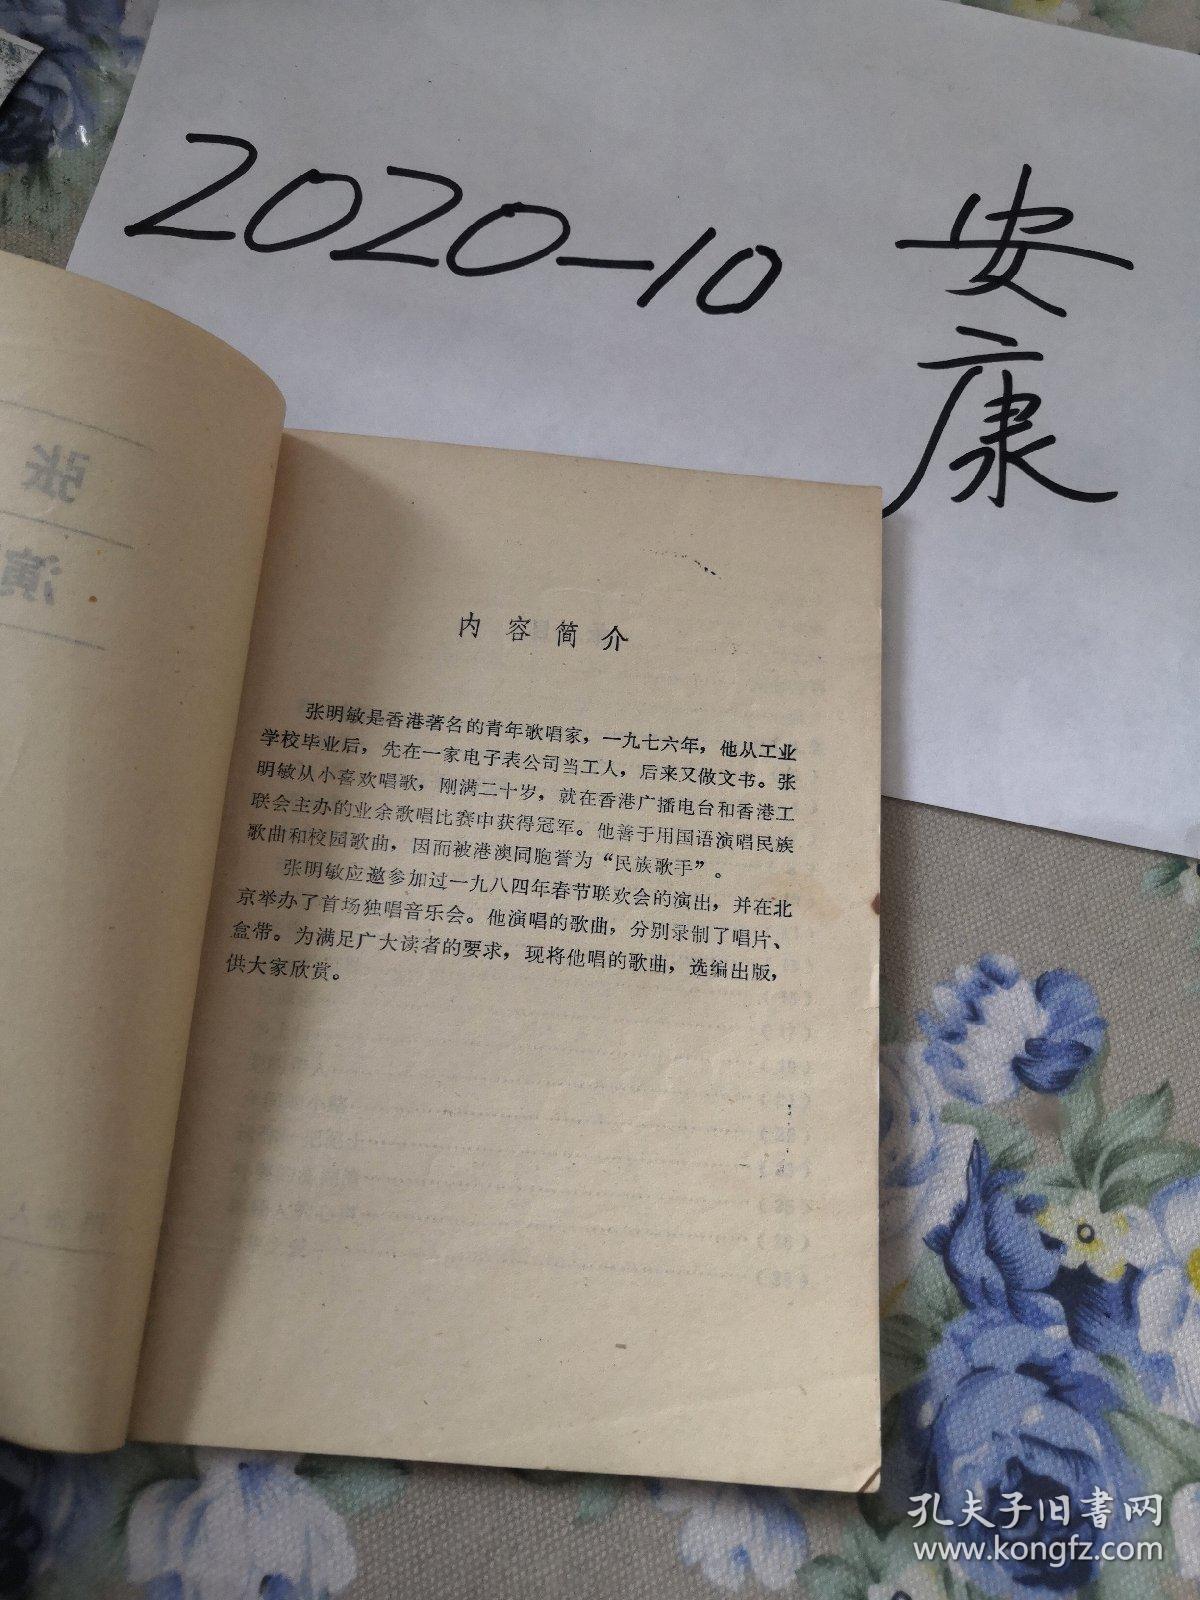 2020-10
安
康
张
演
内容简介
张明敏是香港著名的青年歌唱家，一九七六年，他从工业
学校毕业后，先在一家电子表公司当工人，后来又做文书。张
明敏从小喜欢唱歌，刚满二十岁，就在香港广播电台和香港工
联会主办的业余歌唱比赛中获得冠军。他善于用国语演唱民族
歌曲和校园歌曲，因而被港澳同胞誉为“民族歌手”。
张明敏应邀参加过一九八四年春节联欢会的演出，并在北
京举办了首场独唱音乐会。他演唱的歌曲，分别录制了唱片、
盒带。为满足广大读者的要求，现将他唱的歌曲，选编出版，
供大家欣赏。
孔夫子旧书网
www.kongfz.com